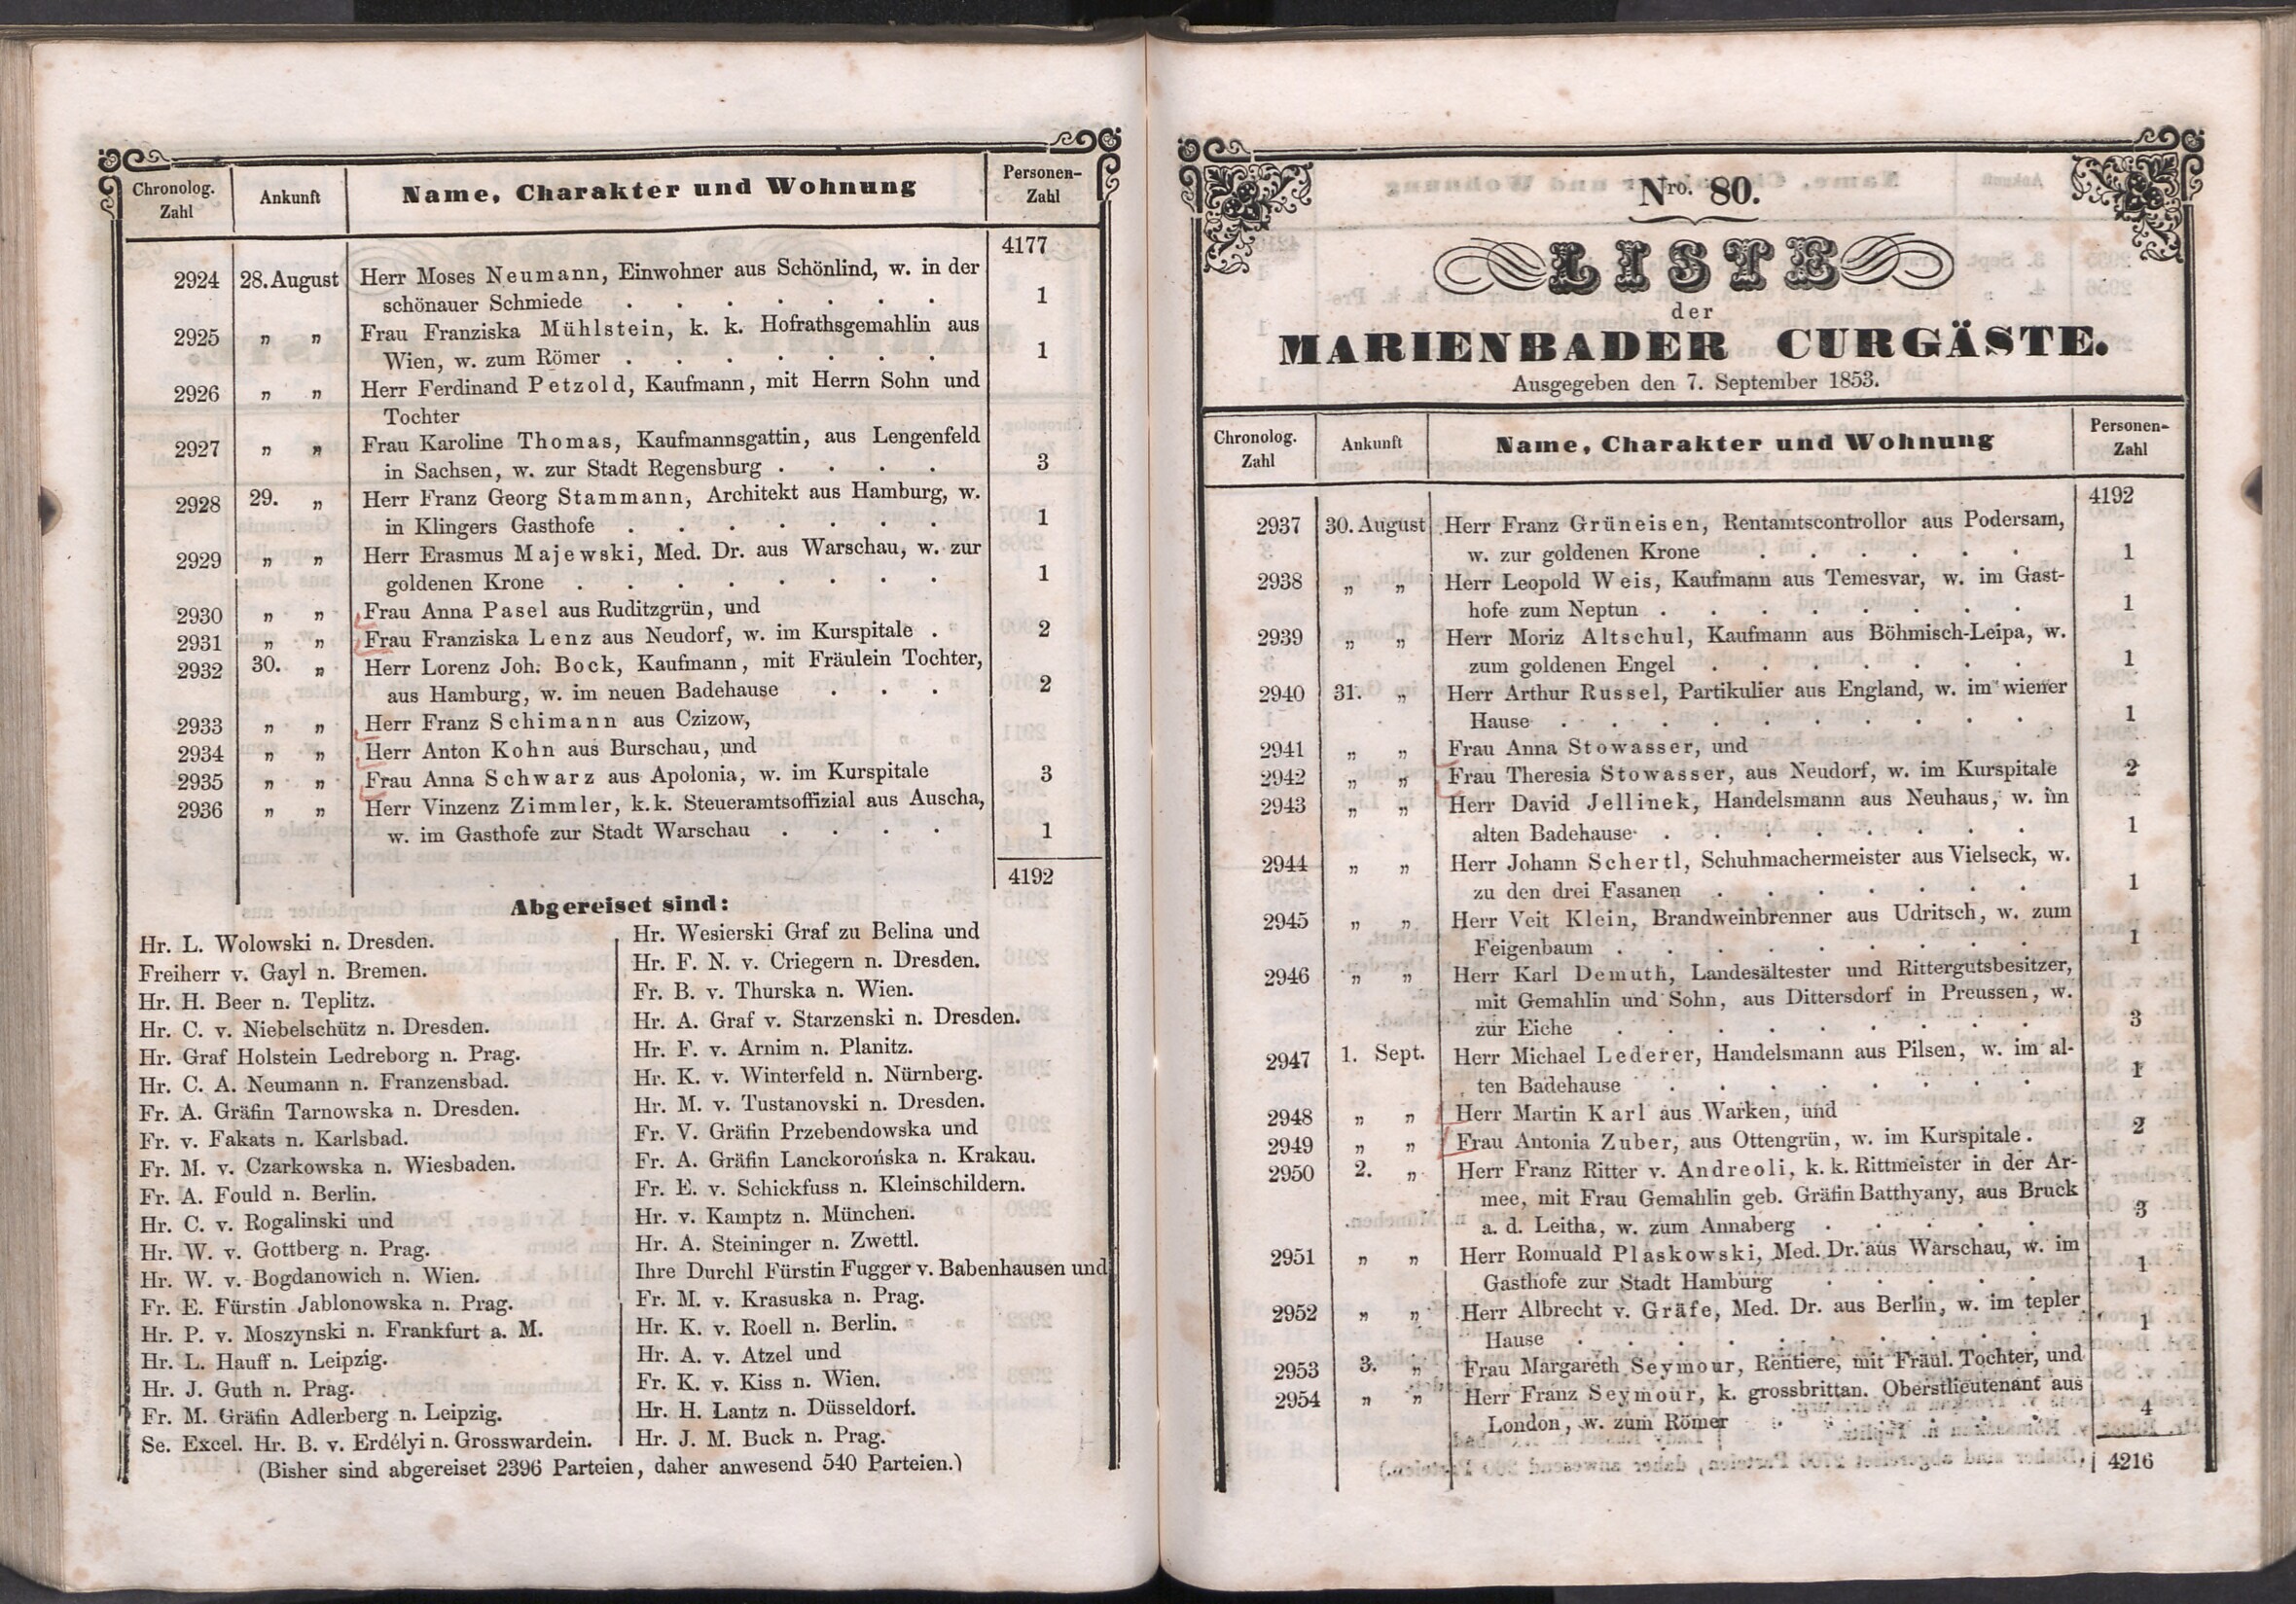 Chronolog. Zahl Ankunft Name, Charakter und Wohnung Personen-Zahl
4177
2924 28. August Herr Moses Neumann, Einwohner aus Schönlind, w. in der
schönauer Schmiede . . . . . . . 1
2925 „ „ Frau Franziska Mühlstein, k. k. Hofrathsgemahlin aus
Wien, w. zum Römer . . . . . . . 1
2926 „ „ Herr Ferdinand Petzold, Kaufmann, mit Herrn Sohn und
Tochter
2927 „ „ Frau Karoline Thomas, Kaufmannsgattin, aus Lengenfeld
in Sachsen, w. zur Stadt Regensburg . . . . 3
2928 29. „ Herr Franz Georg Stammann, Architekt aus Hamburg, w.
in Klingers Gasthofe . . . . . . . 1
2929 „ „ Herr Erasmus Majewski, Med. Dr. aus Warschau, w. zur
goldenen Krone . . . . . . . . 1
2930 „ „ Frau Anna Pasel aus Ruditzgrün, und
2931 „ „ Frau Franziska Lenz aus Neudorf, w. im Kurspitale . 2
2932 30. „ Herr Lorenz Joh. Bock, Kaufmann, mit Fräulein Tochter,
aus Hamburg, w. im neuen Badehause . . . 2
2933 „ „ Herr Franz Schimann aus Czizow,
2934 „ „ Herr Anton Kohn aus Burschau, und
2935 „ „ Frau Anna Schwarz aus Apolonia, w. im Kurspitale 3
2936 „ „ Herr Vinzenz Zimmler, k. k. Steueramtsoffizial aus Auscha,
w. im Gasthofe zur Stadt Warschau . . . . 1
4192
Abgereiset sind:
Hr. L. Wolowski n. Dresden.
Freiherr v. Gayl n. Bremen.
Hr. H. Beer n. Teplitz.
Hr. C. v. Niebelschütz n. Dresden.
Hr. Graf Holstein Ledreborg n. Prag.
Hr. C. A. Neumann n. Franzensbad.
Fr. A. Gräfin Tarnowska n. Dresden.
Fr. v. Fakats n. Karlsbad.
Fr. M. v. Czarkowska n. Wiesbaden.
Fr. A. Fould n. Berlin.
Hr. C. v. Rogalinski und
Hr. W. v. Gottberg n. Prag.
Hr. W. v. Bogdanowich n. Wien.
Fr. E. Fürstin Jablonowska n. Prag.
Hr. P. v. Moszynski n. Frankfurt a. M.
Hr. L. Hauff n. Leipzig.
Hr. J. Guth n. Prag.
Fr. M. Gräfin Adlerberg n. Leipzig.
Se. Excel. Hr. B. v. Erdélyi n. Grosswardein.
Hr. Wesierski Graf zu Belina und
Hr. F. N. v. Criegern n. Dresden.
Fr. B. v. Thurska n. Wien.
Hr. A. Graf v. Starzenski n. Dresden.
Hr. F. v. Arnim n. Planitz.
Hr. K. v. Winterfeld n. Nürnberg.
Hr. M. v. Tustanovski n. Dresden.
Fr. V. Gräfin Przebendowska und
Fr. A. Gräfin Lanckorońska n. Krakau.
Fr. E. v. Schickfuss n. Kleinschildern.
Hr. v. Kamptz n. München.
Hr. A. Steininger n. Zwettl.
Ihre Durchl Fürstin Fugger v. Babenhausen und
Fr. M. v. Krasuska n. Prag.
Hr. K. v. Roell n. Berlin.
Hr. A. v. Atzel und
Fr. K. v. Kiss n. Wien.
Hr. H. Lantz n. Düsseldorf.
Hr. J. M. Buck n. Prag.
(Bisher sind abgereiset 2396 Parteien, daher anwesend 540 Parteien.)
Nro. 80.
LISTE
der
MARIENBADER CURGÄSTE.
Ausgegeben den 7. September 1853.
Chronolog. Zahl Ankunft Name, Charakter und Wohnung Personen-Zahl
4192
2937 30. August Herr Franz Grüneisen, Rentamtscontrollor aus Podersam,
w. zur goldenen Krone . . . . . . 1
2938 „ „ Herr Leopold Weis, Kaufmann aus Temesvar, w. im Gast-
hofe zum Neptun . . . . . . . . 1
2939 „ „ Herr Moriz Altschul, Kaufmann aus Böhmisch-Leipa, w.
zum goldenen Engel . . . . . . . 1
2940 31. „ Herr Arthur Russel, Partikulier aus England, w. im wiener
Hause . . . . . . . . . . 1
2941 „ „ Frau Anna Stowasser, und
2942 „ „ Frau Theresia Stowasser, aus Neudorf, w. im Kurspitale 2
2943 „ „ Herr David Jellinek, Handelsmann aus Neuhaus, w. im
alten Badehause . . . . . . . . 1
2944 „ „ Herr Johann Schertl, Schuhmachermeister aus Vielseck, w.
zu den drei Fasanen . . . . . . . 1
2945 „ „ Herr Veit Klein, Brandweinbrenner aus Udritsch, w. zum
Feigenbaum . . . . . . . . . 1
2946 „ „ Herr Karl Demuth, Landesältester und Rittergutsbesitzer,
mit Gemahlin und Sohn, aus Dittersdorf in Preussen, w.
zur Eiche . . . . . . . . . 3
2947 1. Sept. Herr Michael Lederer, Handelsmann aus Pilsen, w. im al-
ten Badehause . . . . . . . . 1
2948 „ „ Herr Martin Karl aus Warken, und
2949 „ „ Frau Antonia Zuber, aus Ottengrün, w. im Kurspitale . 2
2950 2. „ Herr Franz Ritter v. Andreoli, k. k. Rittmeister in der Ar-
mee, mit Frau Gemahlin geb. Gräfin Batthyany, aus Bruck
a. d. Leitha, w. zum Annaberg . . . . . 3
2951 „ „ Herr Romuald Plaskowski, Med. Dr. aus Warschau, w. im
Gasthofe zur Stadt Hamburg . . . . . 1
2952 „ „ Herr Albrecht v. Gräfe, Med. Dr. aus Berlin, w. im tepler
Hause . . . . . . . . . 1
2953 3. „ Frau Margareth Seymour, Rentiere, mit Fräul. Tochter, und
2954 „ „ Herr Franz Seymour, k. grossbrittan. Oberstlieutenant aus
London, w. zum Römer . . . . . . 4
4216